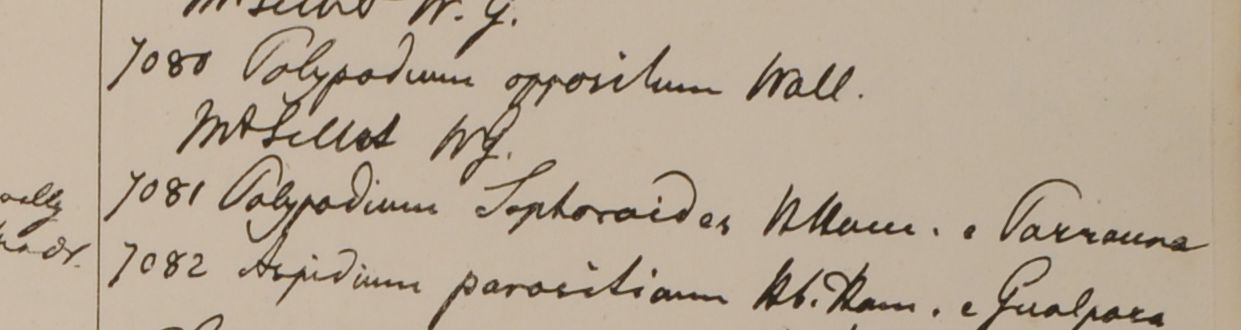 W. G.
7080 Polypodium oppositum Wall.
Mt Sillet WG.
7081 Polypodium Sophoroides HHam. e Parrauna
7082 Aspidium parasiticum Hb. Ham. e Gualpara